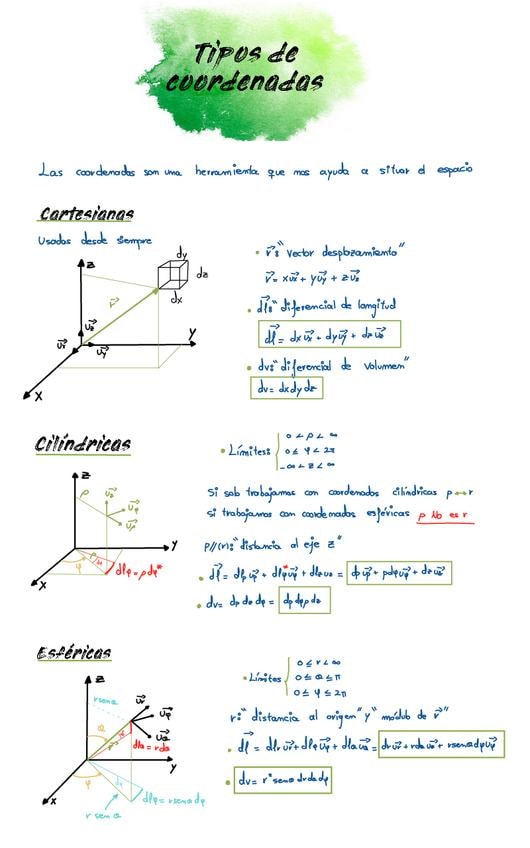 Tipos de
coordenadas
Las coordenadas son una herramienta que nos ayuda a situar el espacio
Cartesianas
Usadas desde siempre
z
dy
dz
dx
r⃗
u⃗z
u⃗x
u⃗y
y
x
• r⃗: "Vector desplazamiento"
r⃗ = xu⃗x + yu⃗y + zu⃗z
• dl⃗: "diferencial de longitud
dl⃗ = dxu⃗x + dyu⃗y + dzu⃗z
• dv: "diferencial de volumen"
dv = dxdydz
Cilíndricas
• Límites:
0 < ρ < ∞
0 ≤ φ < 2π
-∞ < z < ∞
z
ρ
u⃗z
u⃗φ
u⃗ρ
y
x
φ
dlφ = ρdφ*
Si solo trabajamos con coordenadas cilíndricas ρ ↔ r
si trabajamos con coordenadas esféricas ρ No es r
ρ//(r): "distancia al eje z"
• dl⃗ = dlρu⃗ρ + dlφ*u⃗φ + dlzu⃗z = dρu⃗ρ + ρdφu⃗φ + dzu⃗z
• dv = dρ dz dφ = dρ dφ dz
Esféricas
• Límites
0 ≤ r < ∞
0 ≤ θ ≤ π
0 ≤ φ ≤ 2π
z
r senθ
u⃗r
u⃗φ
u⃗θ
θ
dlθ = rdθ
y
φ
x
dlφ = rsenθdφ
r senθ
r: "distancia al origen" y "módulo de r⃗"
• dl⃗ = dlru⃗r + dlφu⃗φ + dlθu⃗θ = dru⃗r + rdθu⃗θ + rsenθdφu⃗φ
• dv = r²senθdrdθdφ